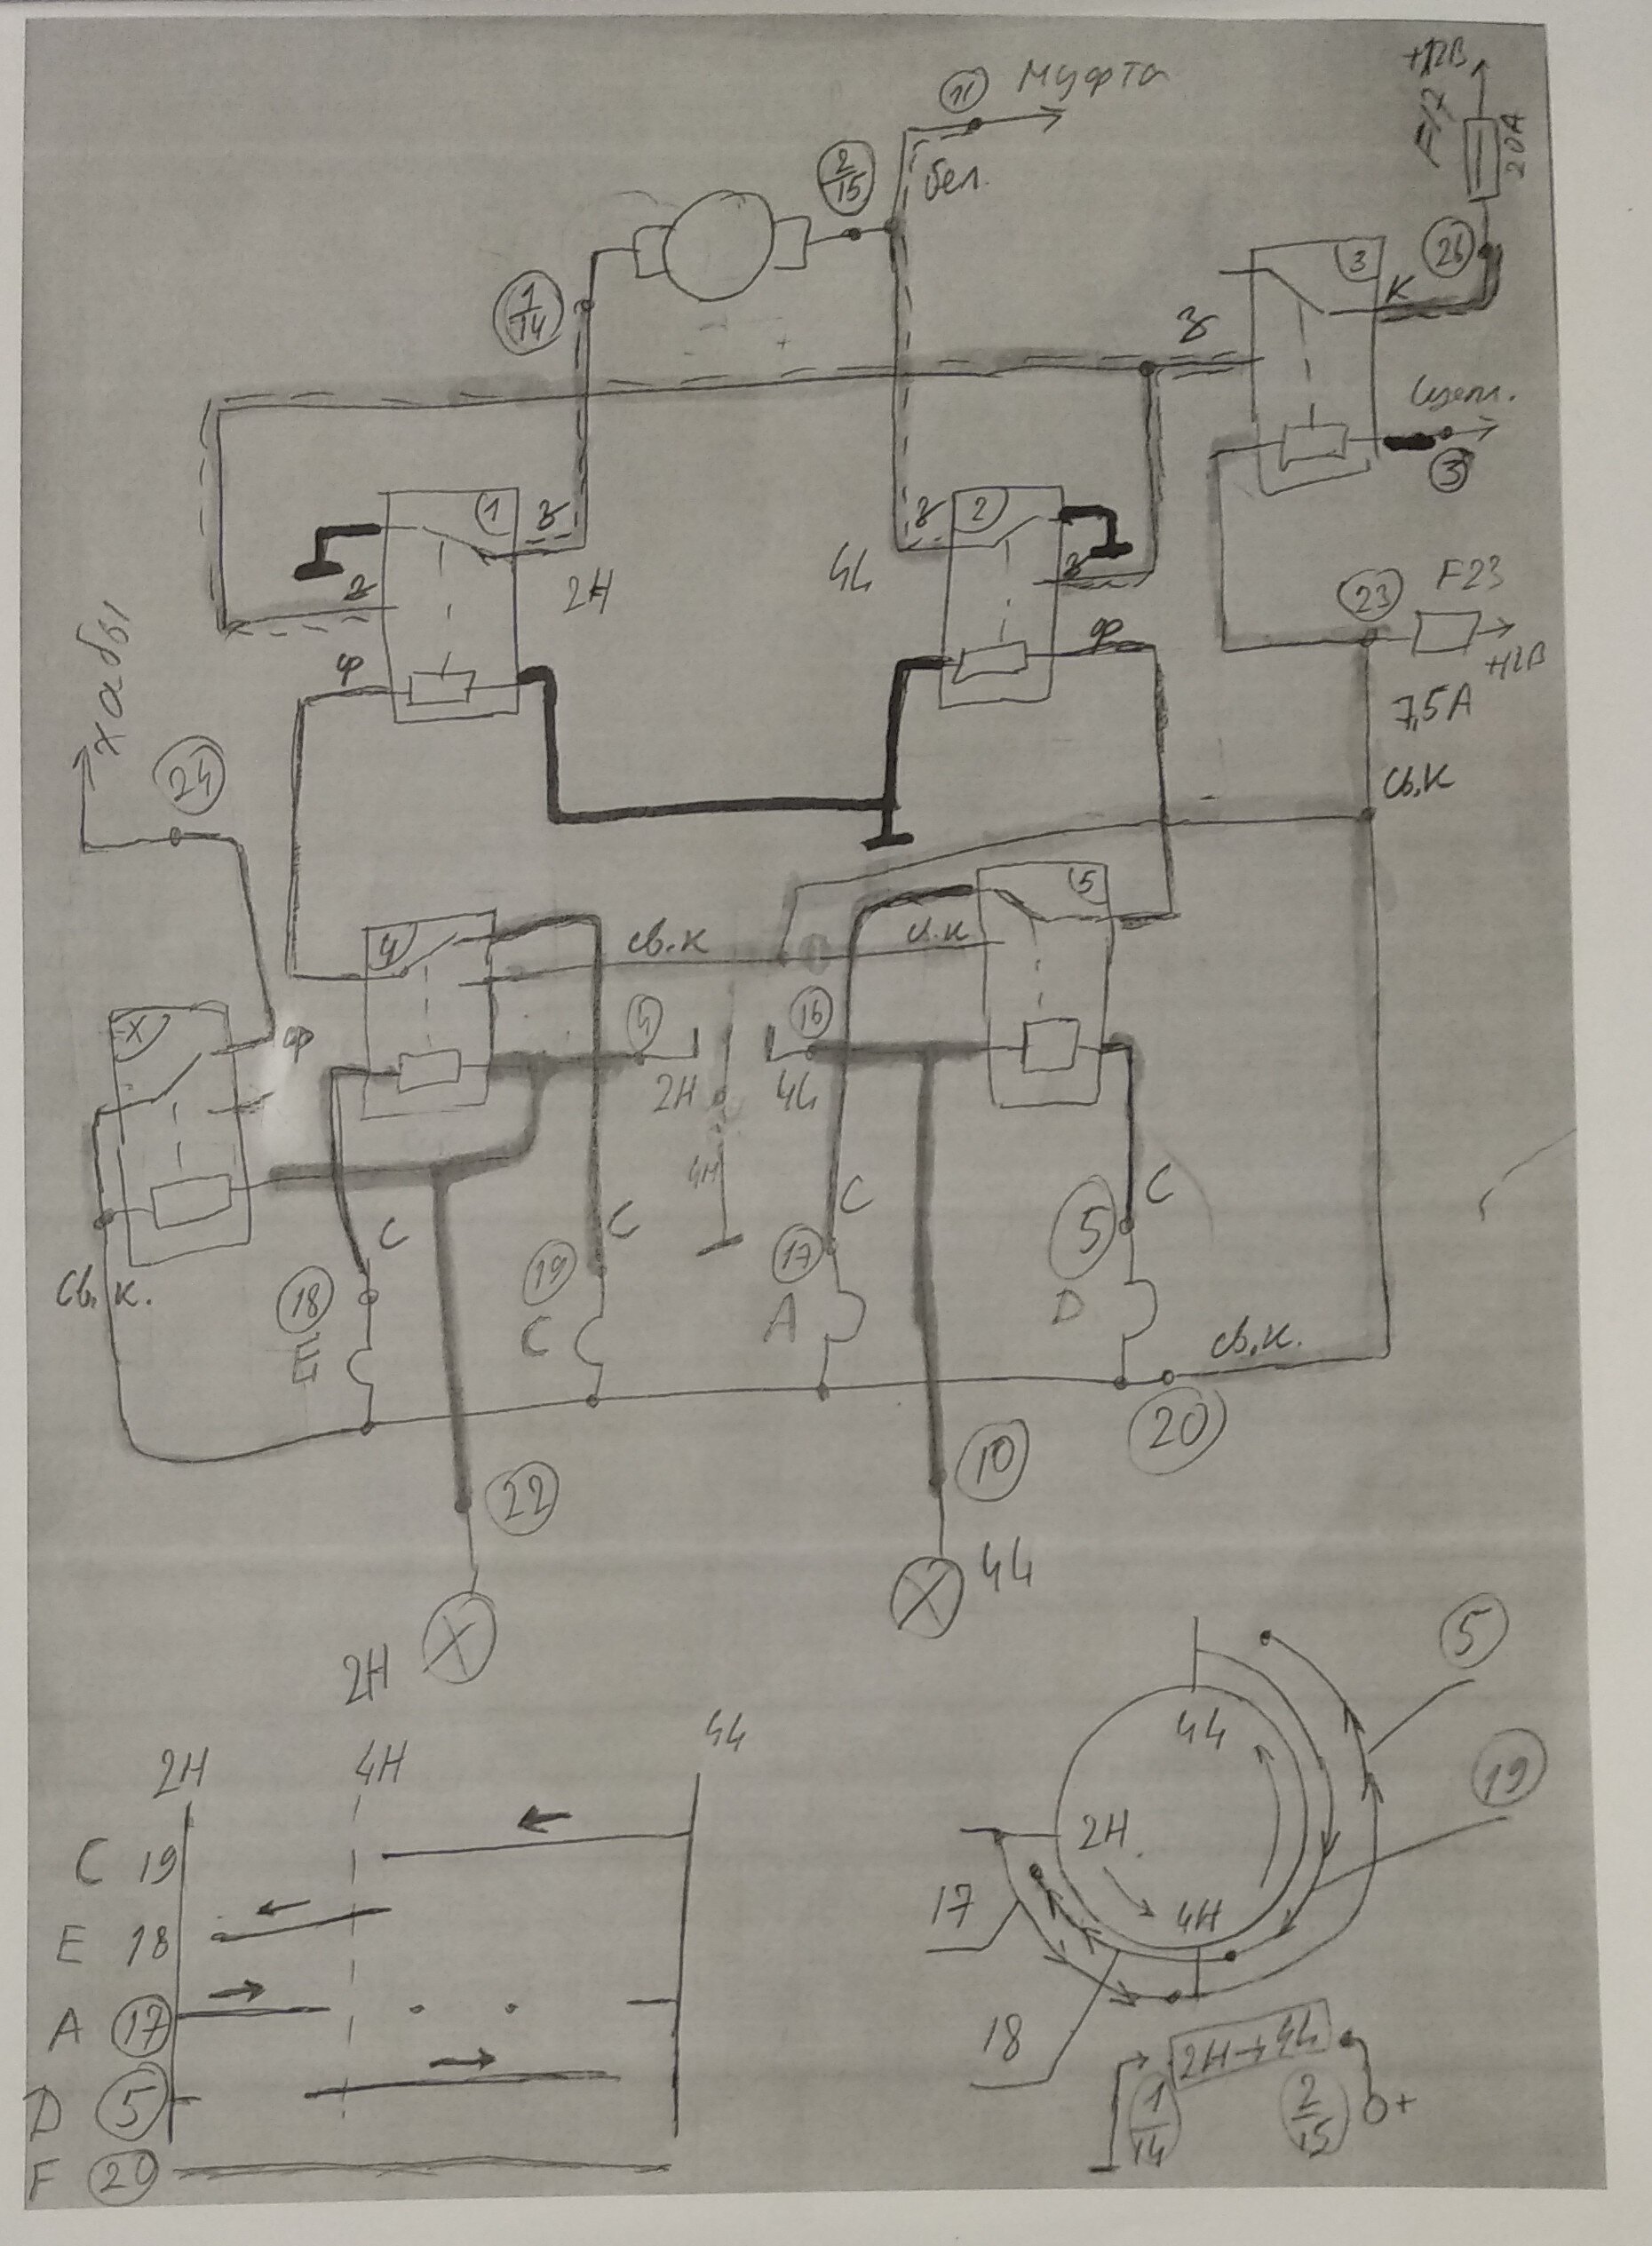 +12В
11 Муфта
20А
2/15
бел.
26
3
К
1/14
з
3
1
з
з
2
4L
2Н
з
з
23
F23
+12В
ф
ф
7,5А
хабы
24
св.к
5
4
св.к
с.к
X
ф
4
16
2Н
4L
4Н
С
С
С
С
5
св.к.
18
19
17
E
C
A
D
св.к.
20
22
10
4L
2Н
5
2Н
4Н
4L
4L
19
C 19
2Н
17
E 18
4Н
A 17
18
2Н→4L
D 5
1/14
2/15
+
F 20